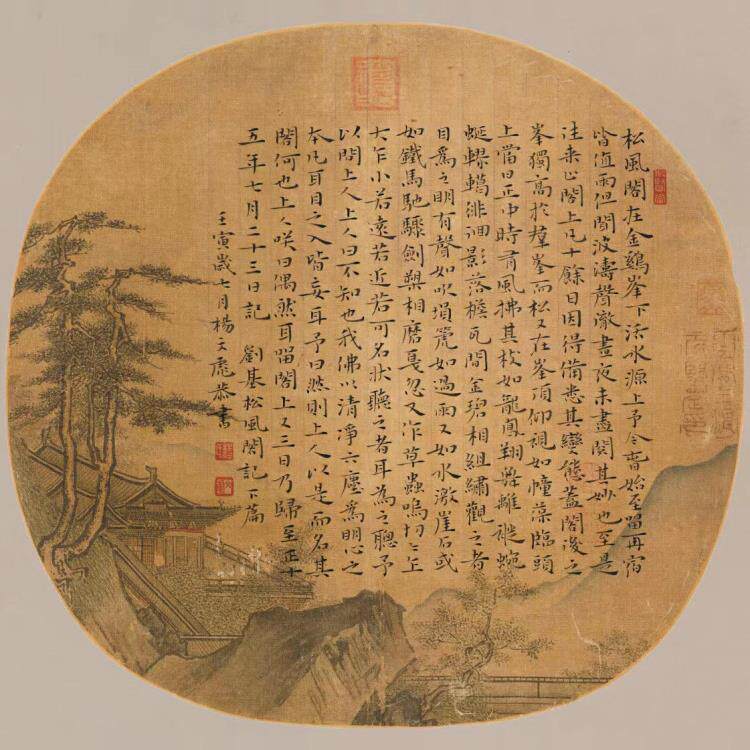 松風閣在金鷄峯下活水源上予今春始至留再宿
皆值雨但聞波濤聲澈晝夜未盡閱其妙也至是
往来止閣上凡十餘日因得備悉其變態蓋閣後之
峯獨高於羣峯而松又在峯頂仰視如幢葆臨頭
上當日正中時有風拂其枝如龍鳳翔舞離褷蜿
蜒轇轕徘徊影落檐瓦間金碧相組繡觀之者
目為之明有聲如吹塤篪如過雨又如水激崖石或
如鐵馬馳驟劍槊相磨戛忽又作草蟲鳴切々乍
大乍小若遠若近若可名狀聽之者耳為之聰予
以問上人上人曰不知也我佛以清淨六塵為明心之
本凡耳目之入皆妄耳予曰然則上人以是而名其
閣何也上人咲曰偶然耳留閣上又三日乃歸至正十
五年七月二十三日記 劉基松風閣記下篇
壬寅歲七月楊文恭書